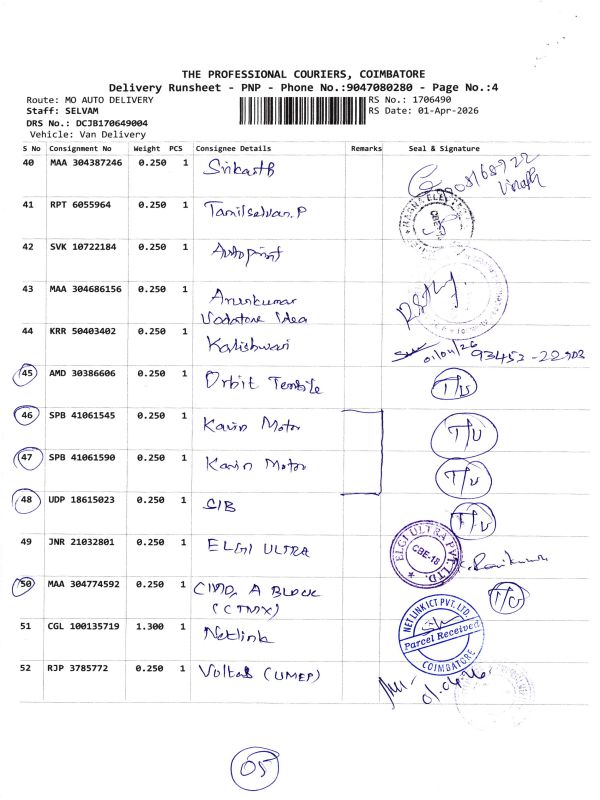 THE PROFESSIONAL COURIERS, COIMBATORE
Delivery Runsheet - PNP - Phone No.:9047080280 - Page No.:4
Route: MO AUTO DELIVERY
RS No.: 1706490
Staff: SELVAM
RS Date: 01-Apr-2026
DRS No.: DCJB170649004
Vehicle: Van Delivery
S No Consignment No Weight PCS Consignee Details Remarks Seal & Signature
40 MAA 304387246 0.250 1 Srikanth
41 RPT 6055964 0.250 1 Tamilselvan.P
42 SVK 10722184 0.250 1 Autoprint
43 MAA 304686156 0.250 1 Arunkumar
Vodafone Idea
44 KRR 50403402 0.250 1 Kalishwari 01/04/26 93453-22903
45 AMD 30386606 0.250 1 Orbit Textile T/U
46 SPB 41061545 0.250 1 Karin Motor T/U
47 SPB 41061590 0.250 1 Karin Motor T/U
48 UDP 18615023 0.250 1 SIB T/U
49 JNR 21032801 0.250 1 ELGI ULTRA ELGI ULTRA PVT. LTD. CBE-18
50 MAA 304774592 0.250 1 A Block
51 CGL 100135719 1.300 1 Netlink NET LINK ICT PVT. LTD. Parcel Received COIMBATORE
52 RJP 3785772 0.250 1 Voltas (UMEP) 01.04.26
05